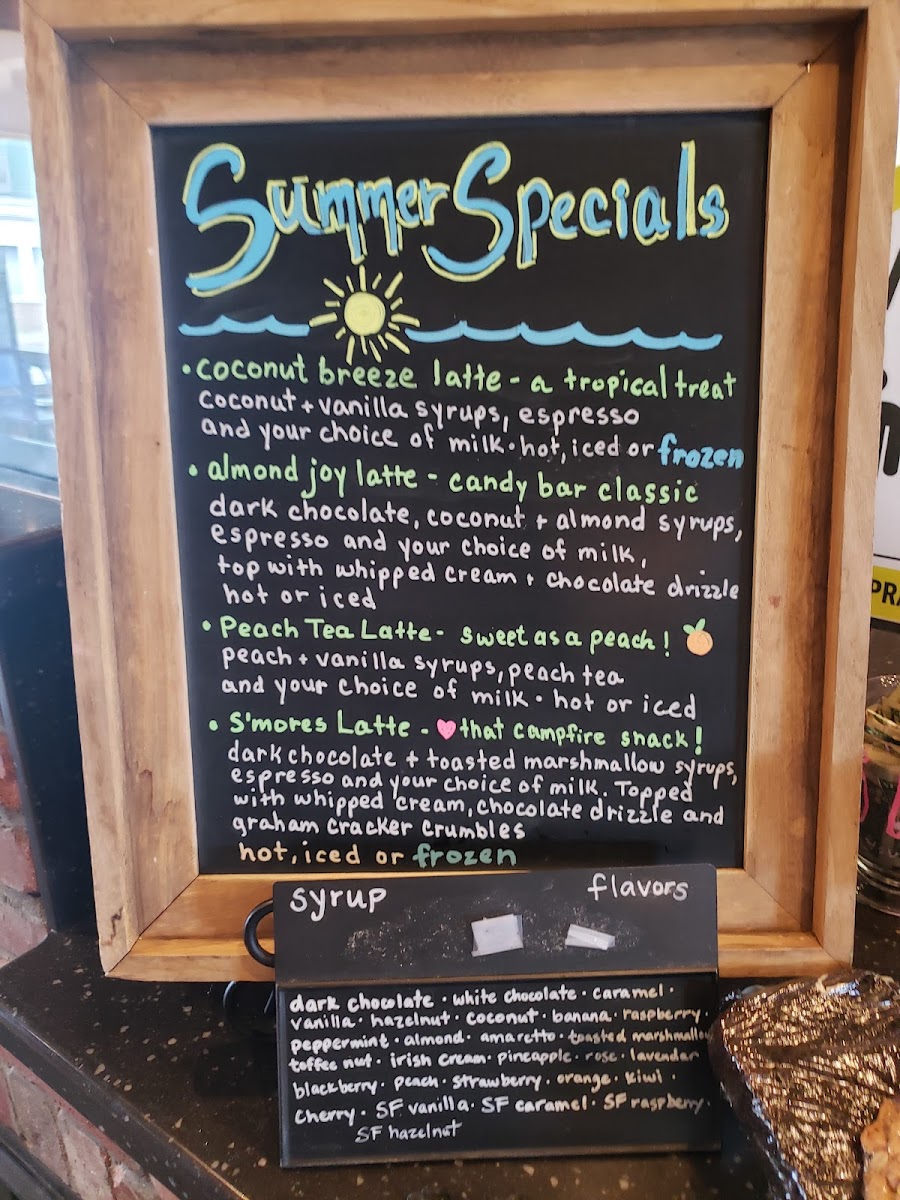 Summer Specials
• coconut breeze latte - a tropical treat
coconut + vanilla syrups, espresso
and your choice of milk • hot, iced or frozen
• almond joy latte - candy bar classic
dark chocolate, coconut + almond syrups,
espresso and your choice of milk,
top with whipped cream + chocolate drizzle
hot or iced
• Peach Tea Latte - sweet as a peach!
peach + vanilla syrups, peach tea
and your choice of milk • hot or iced
• S'mores Latte - ♥ that campfire snack!
dark chocolate + toasted marshmallow syrups,
espresso and your choice of milk. Topped
with whipped cream, chocolate drizzle and
graham cracker crumbles
hot, iced or frozen
syrup flavors
dark chocolate • white chocolate • caramel •
vanilla • hazelnut • coconut • banana • raspberry •
peppermint • almond • amaretto • toasted marshmallo
toffee nut • irish cream • pineapple • rose • lavendar
blackberry • peach • strawberry • orange • kiwi •
cherry • SF vanilla • SF caramel • SF raspberry •
SF hazelnut
PRA